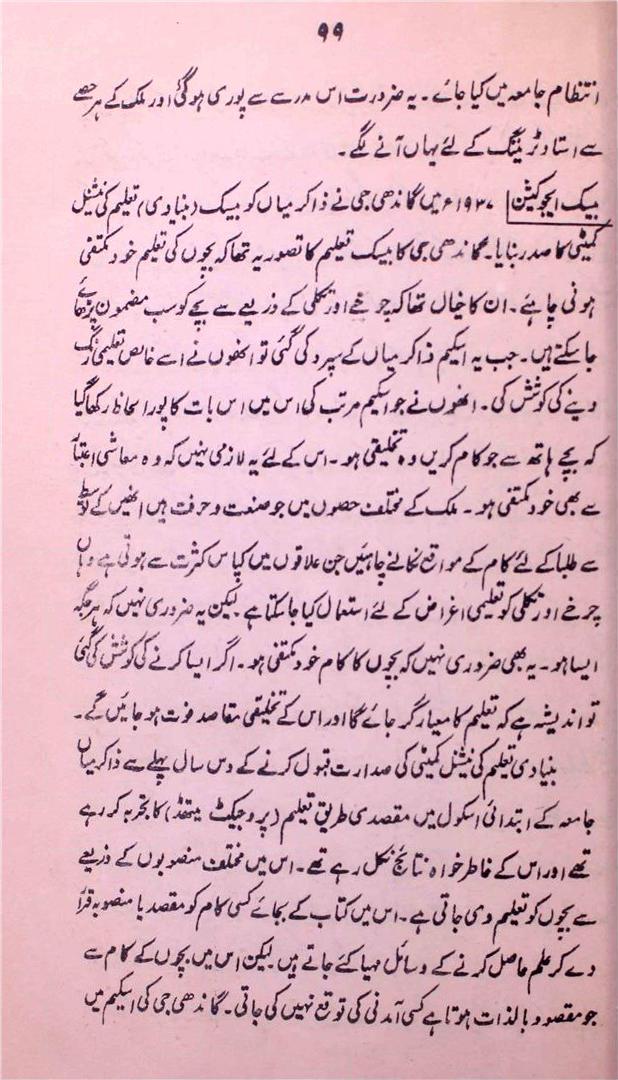 ۹۹
انتظام جامعہ میں کیا جائے۔ یہ ضرورت اس مدرسے سے پوری ہوگئی اور ملک کے ہر حصے
سے استاد ٹریننگ کے لئے یہاں آنے لگے۔
بیسک ایجوکیشن ۱۹۳۷ء میں گاندھی جی نے ذاکر میاں کو بیسک (بنیادی) تعلیم کی نیشنل
کمیٹی کا صدر بنایا۔ گاندھی جی کا بیسک تعلیم کا تصور یہ تھا کہ بچوں کی تعلیم خود مکتفی
ہونی چاہئے۔ ان کا خیال تھا کہ چرخے اور تکلی کے ذریعے سے بچے کو سب مضمون پڑھائے
جاسکتے ہیں۔ جب یہ اسکیم ذاکر میاں کے سپرد کی گئی تو انھوں نے اسے خالص تعلیمی رنگ
دینے کی کوشش کی۔ انھوں نے جو اسکیم مرتب کی اس میں اس بات کا پورا لحاظ رکھا گیا
کہ بچے ہاتھ سے جو کام کریں وہ تخلیقی ہو۔ اس کے لئے یہ لازمی نہیں کہ وہ معاشی اعتبار
سے بھی خود مکتفی ہو۔ ملک کے مختلف حصوں میں جو صنعت و حرفت ہیں انھیں کے توسط
سے طلبا کے لئے کام کے مواقع نکالنے چاہئیں جن علاقوں میں کپاس کثرت سے ہوتی ہے وہاں
چرخے اور تکلی کو تعلیمی اغراض کے لئے استعمال کیا جاسکتا ہے لیکن یہ ضروری نہیں کہ ہر جگہ
ایسا ہو۔ یہ بھی ضروری نہیں کہ بچوں کا کام خود مکتفی ہو۔ اگر ایسا کرنے کی کوشش کی گئی
تو اندیشہ ہے کہ تعلیم کا معیار گر جائے گا اور اس کے تخلیقی مقاصد فوت ہو جائیں گے۔
بنیادی تعلیم کی نیشنل کمیٹی کی صدارت قبول کرنے کے دس سال پہلے سے ذاکر میاں
جامعہ کے ابتدائی اسکول میں مقصدی طریق تعلیم (پروجیکٹ میتھڈ) کا تجربہ کر رہے
تھے اور اس کے خاطر خواہ نتائج نکل رہے تھے۔ اس میں مختلف منصوبوں کے ذریعے
سے بچوں کو تعلیم دی جاتی ہے۔ اس میں کتاب کے بجائے کسی کام کو مقصد یا منصوبہ قرار
دے کر علم حاصل کرنے کے وسائل مہیا کئے جاتے ہیں لیکن اس میں بچوں کے کام سے
جو مقصود بالذات ہوتا ہے کسی آمدنی کی توقع نہیں کی جاتی۔ گاندھی جی کی اسکیم میں